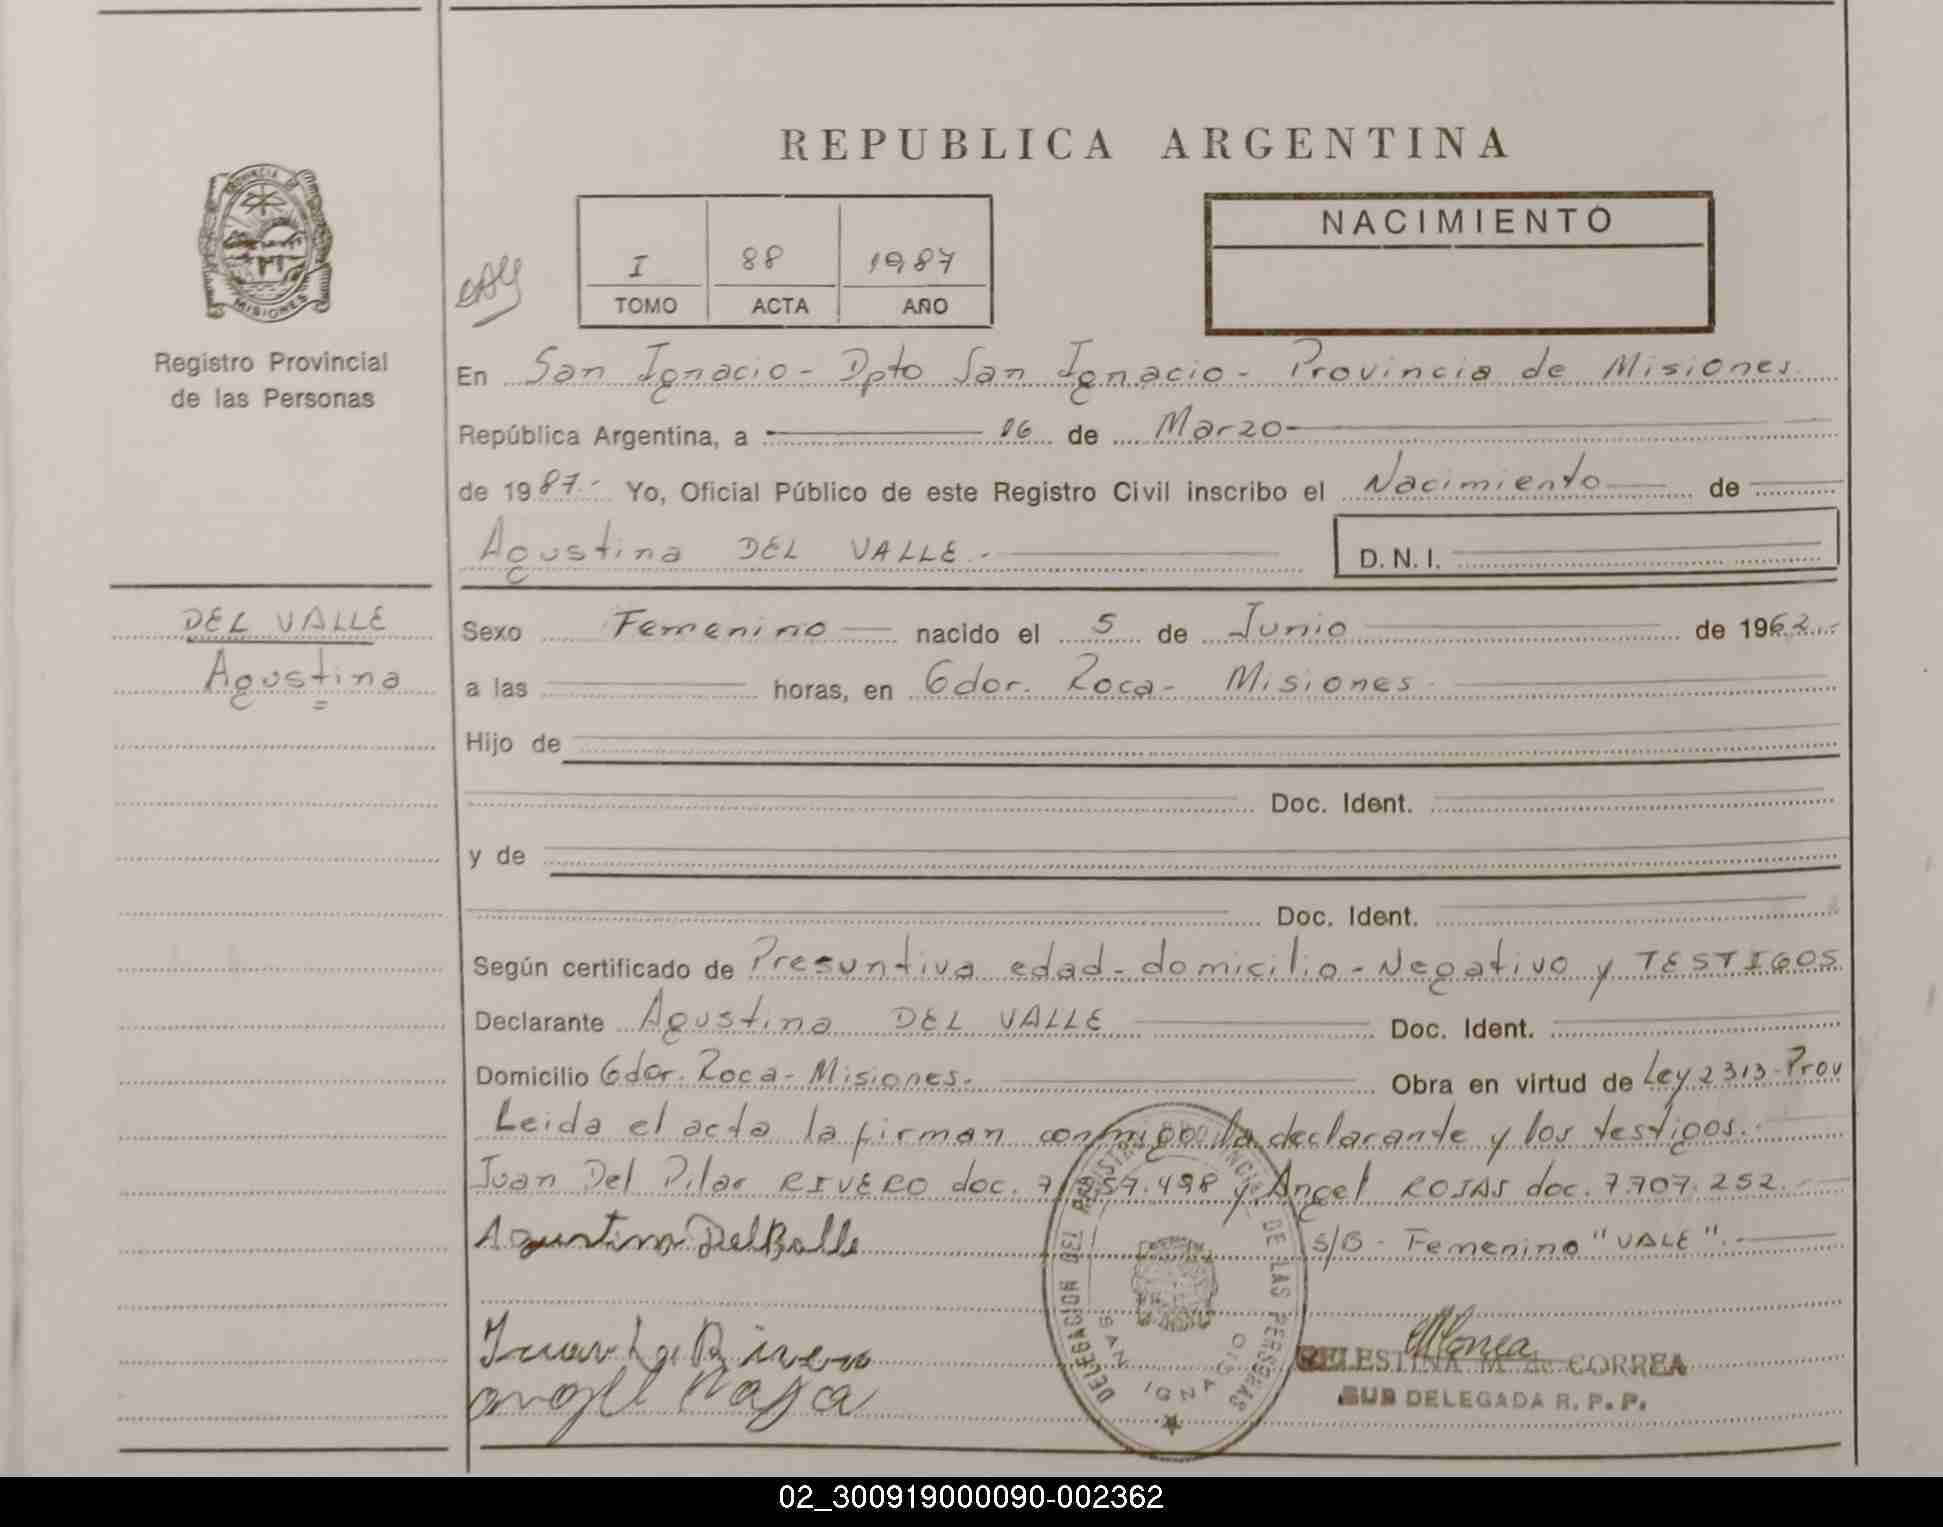 REPUBLICA ARGENTINA
PROVINCIA DE MISIONES
Registro Provincial
de las Personas
I 88 1987
TOMO ACTA AÑO
NACIMIENTO
En San Ignacio - Dpto San Ignacio - Provincia de Misiones
República Argentina, a 16 de Marzo
de 1987.- Yo, Oficial Público de este Registro Civil inscribo el Nacimiento de
Agustina DEL VALLE.-
D.N.I.
DEL VALLE
Agustina
Sexo Femenino nacido el 5 de Junio de 1962.-
a las horas, en Gdor. Roca - Misiones.
Hijo de
Doc. Ident.
y de
Doc. Ident.
Según certificado de Presuntiva edad - domicilio - Negativo y TESTIGOS
Declarante Agustina DEL VALLE Doc. Ident.
Domicilio Gdor. Roca - Misiones. Obra en virtud de Ley 2313 - Prov
Leida el acta la firman conmigo la declarante y los testigos.
Juan Del Pilar RIVERO doc. 7. y Angel ROJAS doc. 7.707.252.
Agustina DelBalle S/B - Femenino "VALE".
DELEGACION DEL REGISTRO PROVINCIAL DE LAS PERSONAS
SAN IGNACIO
Angel
CELESTINA M. de CORREA
SUB DELEGADA R. P. P.
02_300919000090-002362